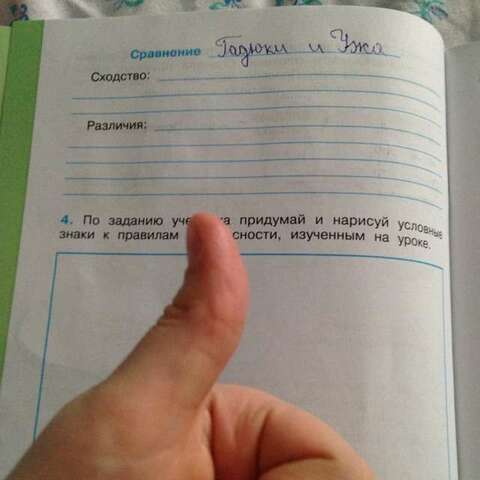 Сравнение Гадюки и Ужа
Сходство:
Различия:
4. По заданию уче ка придумай и нарисуй условные
знаки к правилам сности, изученным на уроке.